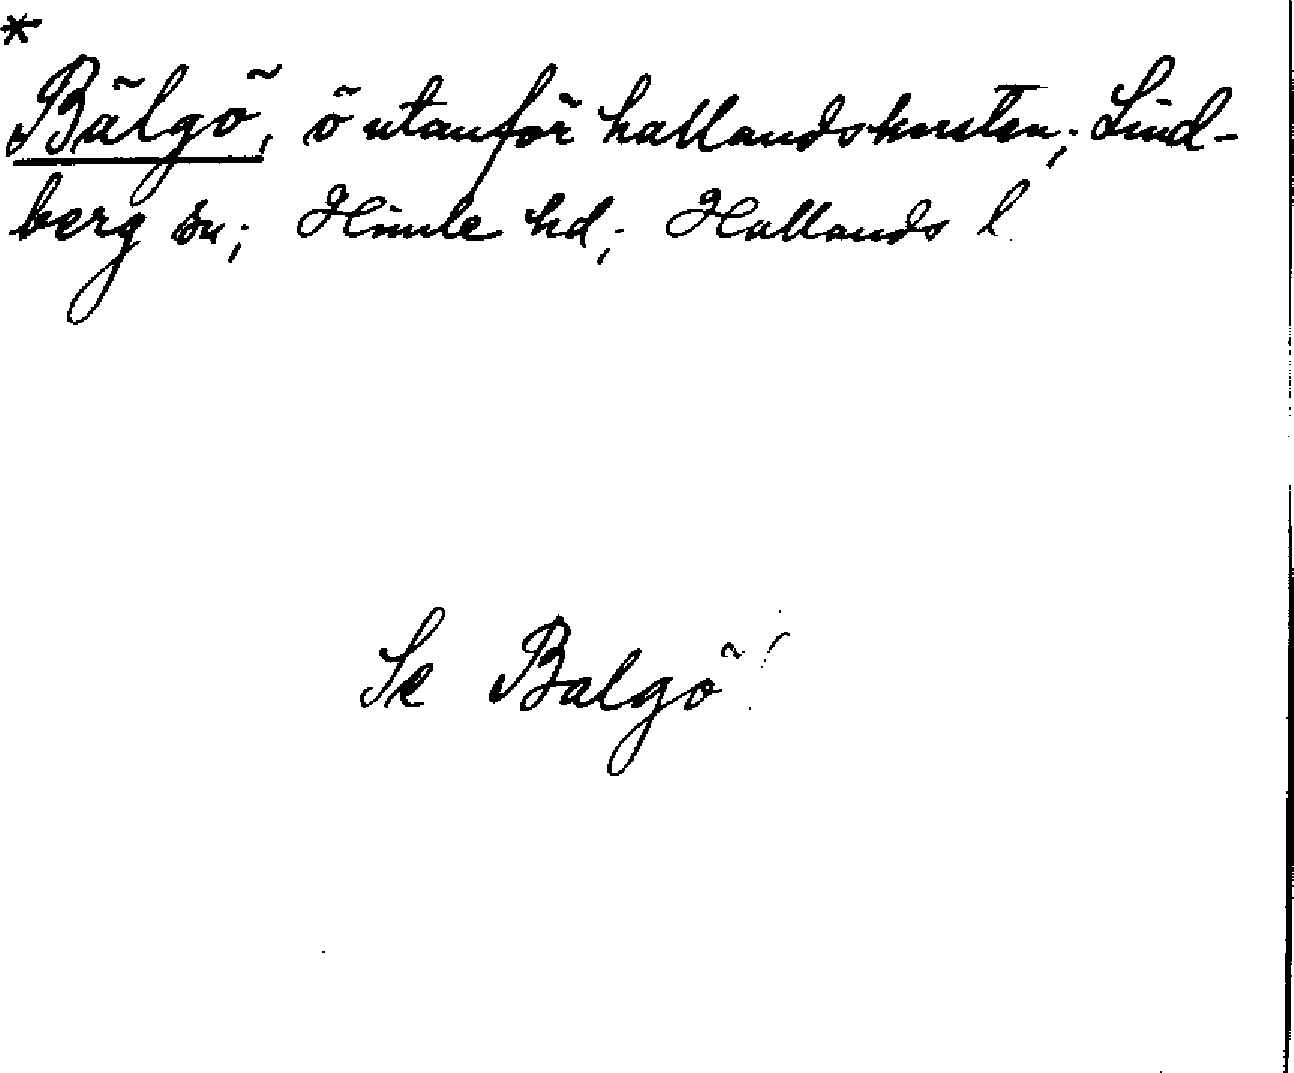 *
Bälgö, ö utanför hallandskusten; Lind-
berg sn; Himle hd; Hallands l.
Se Balgö!